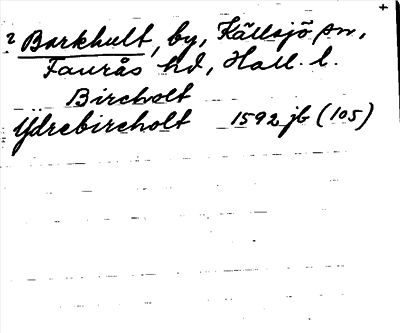 2 Barkhult, by, Källsjö sn,
Faurås hd, Hall. l.
Bircholt
Ydrebircholt 1592 jb (105)